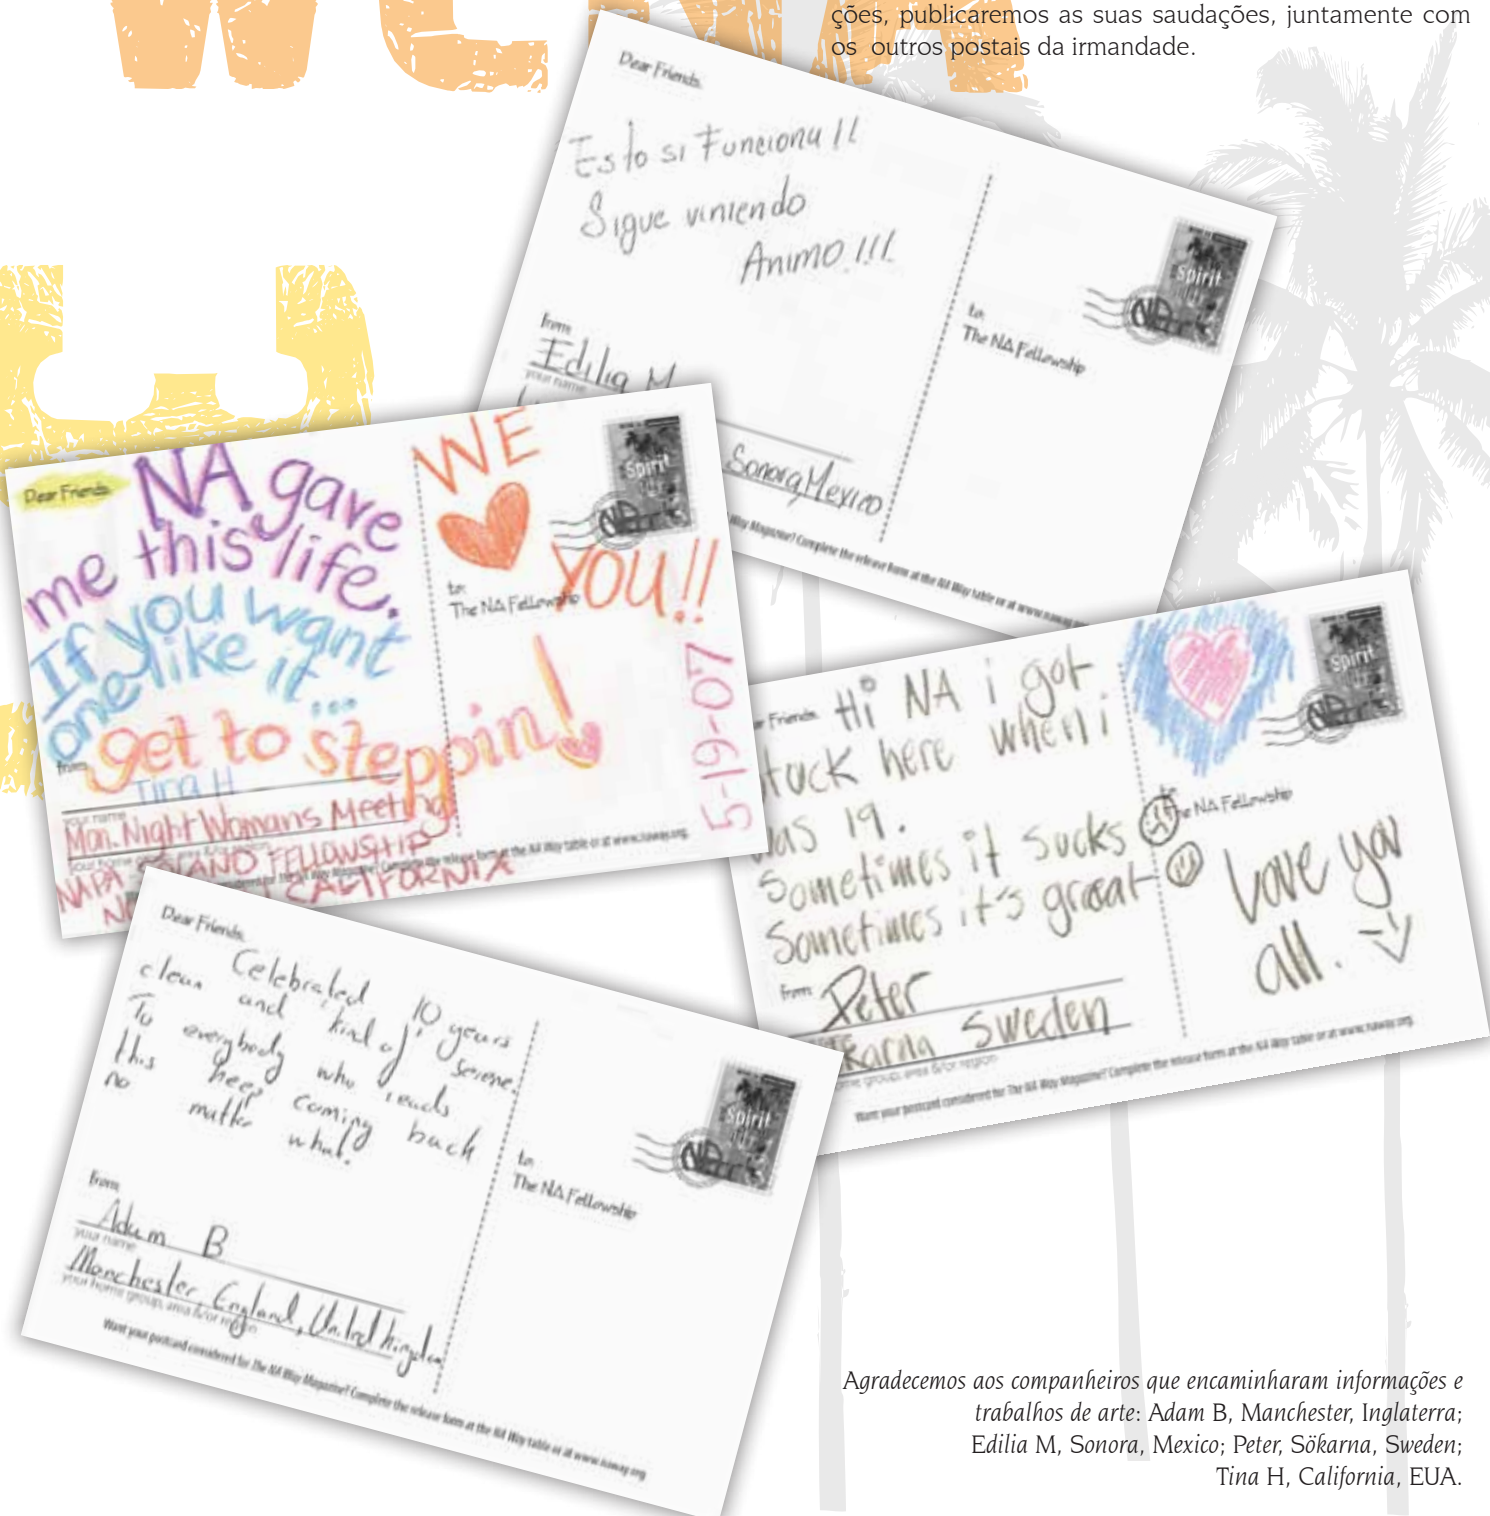 ções, publicaremos as suas saudações, juntamente com
os outros postais da irmandade.
Dear Friends,
Esto si Funciona !!
Sigue viniendo
Animo !!!
from:
Edilia M
your name
Sonora, Mexico
to:
The NA Fellowship
Spirit
Way Magazine? Complete the release form at the NA Way table or at www.naway
Dear Friends,
NA gave
me this life.
If you want
one like it...
get to steppin!
from:
Tina H
your name
Mon. Night Womans Meeting
NAPA SOLANO FELLOWSHIP
CALIFORNIA
WE
YOU!!
Spirit
to:
The NA Fellowship
5-19-07
Complete the release form at the NA Way table or at www.naway.org
Friends,
Hi NA i got
stuck here when i
was 19.
Sometimes it sucks
Sometimes it's great
from:
Peter
karna Sweden
home group, area &/or region
Spirit
to:
The NA Fellowship
Love you
all.
Want your postcard considered for The NA Way Magazine? Complete the release form at the NA Way table or at www.naway.org
Dear Friends,
Celebrated 10 years
clean and kind of serene.
To everybody who reads
this keep coming back
no matter what.
from:
Adam B
your name
Manchester, England, United Kingdom
your home group, area &/or region
Spirit
to:
The NA Fellowship
Want your postcard considered for The NA Way Magazine? Complete the release form at the NA Way table or at www.naway.org
Agradecemos aos companheiros que encaminharam informações e
trabalhos de arte: Adam B, Manchester, Inglaterra;
Edilia M, Sonora, Mexico; Peter, Sökarna, Sweden;
Tina H, California, EUA.